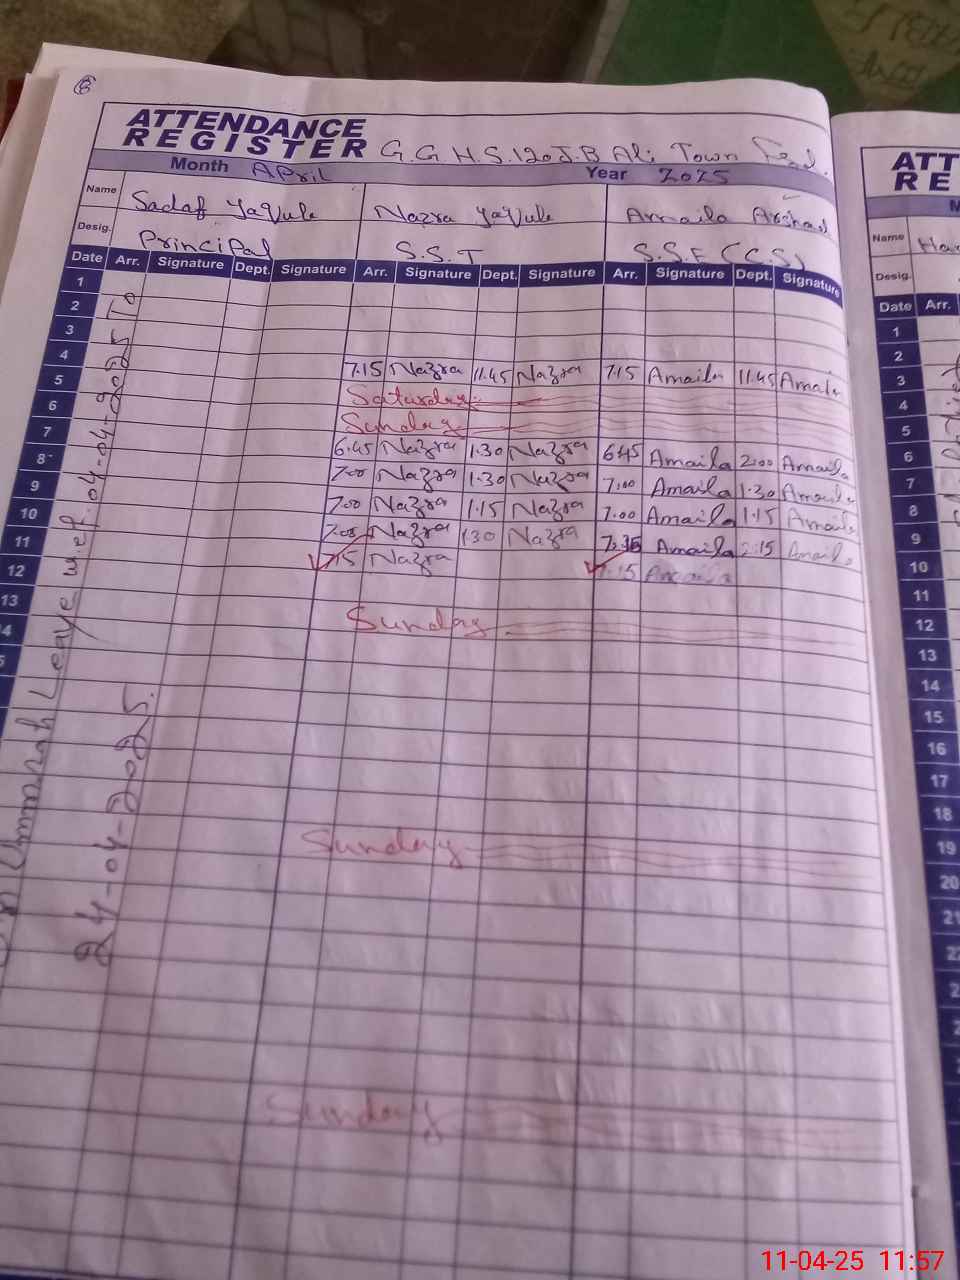 8
ATTENDANCE
REGISTER G.G.H.S. 120 J.B Ali Town
Month April Year 2025
Name Sadaf Yaqub Nazra Yaqub Amaila Arshad
Desig. Principal S.S.T S.S.E (C.S)
Date Arr. Signature Dept. Signature Arr. Signature Dept. Signature Arr. Signature Dept. Signature
1
2
3
4 7.15 Nazra 11.45 Nazra 7.15 Amaila 11.45 Amaila
5 Saturday
6 Sunday
7 6.45 Nazra 1.30 Nazra 6.45 Amaila 2.00 Amaila
8 7.00 Nazra 1.30 Nazra 7.00 Amaila 1.30 Amaila
9 7.00 Nazra 1.15 Nazra 7.00 Amaila 1.15 Amaila
10 Nazra 1.30 Nazra Amaila 2.15 Amaila
11 7.15 Nazra 7.15 Amaila
12
13 Sunday
Sunday
Sunday
Ummrah Leave w.e.f. 04-04-2025 To
24-04-2025.
ATT
RE
M
Name
Desig.
Date Arr.
1
2
3
4
5
6
7
8
9
10
11
12
13
14
15
16
17
18
19
20
21
11-04-25 11:57